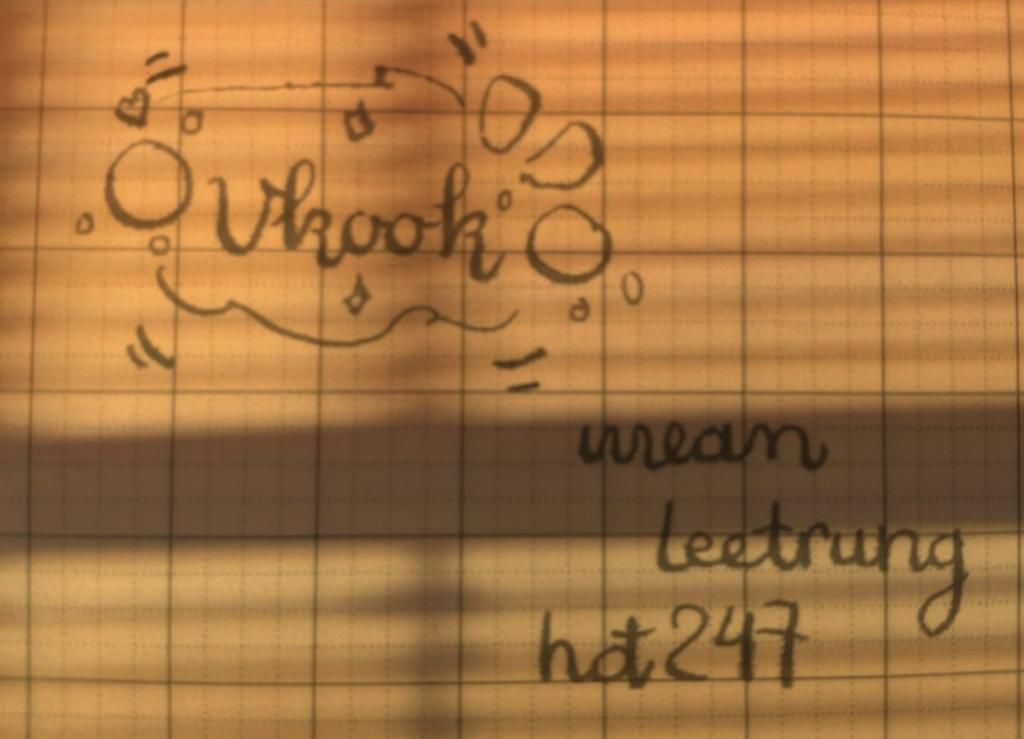 Vkook
mean
leetrung
hot247